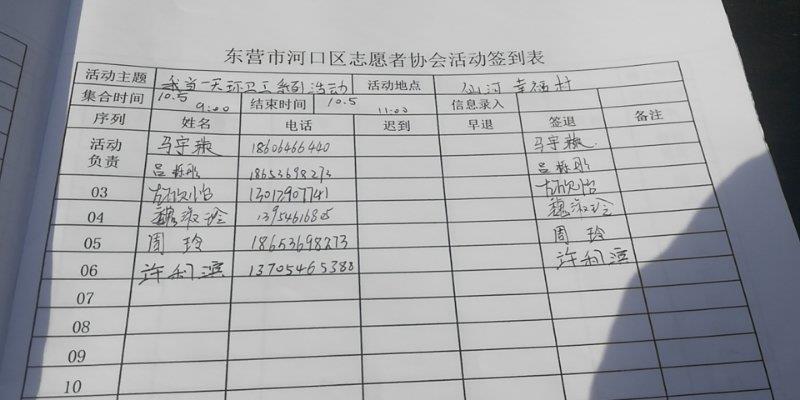 东营市河口区志愿者协会活动签到表
活动主题 我当一天环卫工系列活动 活动地点 仙河幸福村
集合时间 10.5 9:00 结束时间 10.5 11:00 信息录入
序列 姓名 电话 迟到 早退 签退 备注
活动负责 马宇 18606466440 马宇
吕 18653698273 吕
03 13012907741
04 魏淑玲 13954616825 魏淑玲
05 周玲 18653698273 周玲
06 许利滨 13705465388 许利滨
07
08
09
10